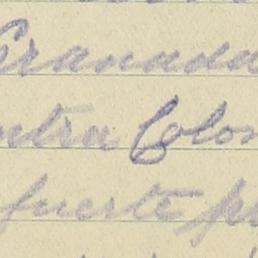 Granada
ntra Colon
fuerte p